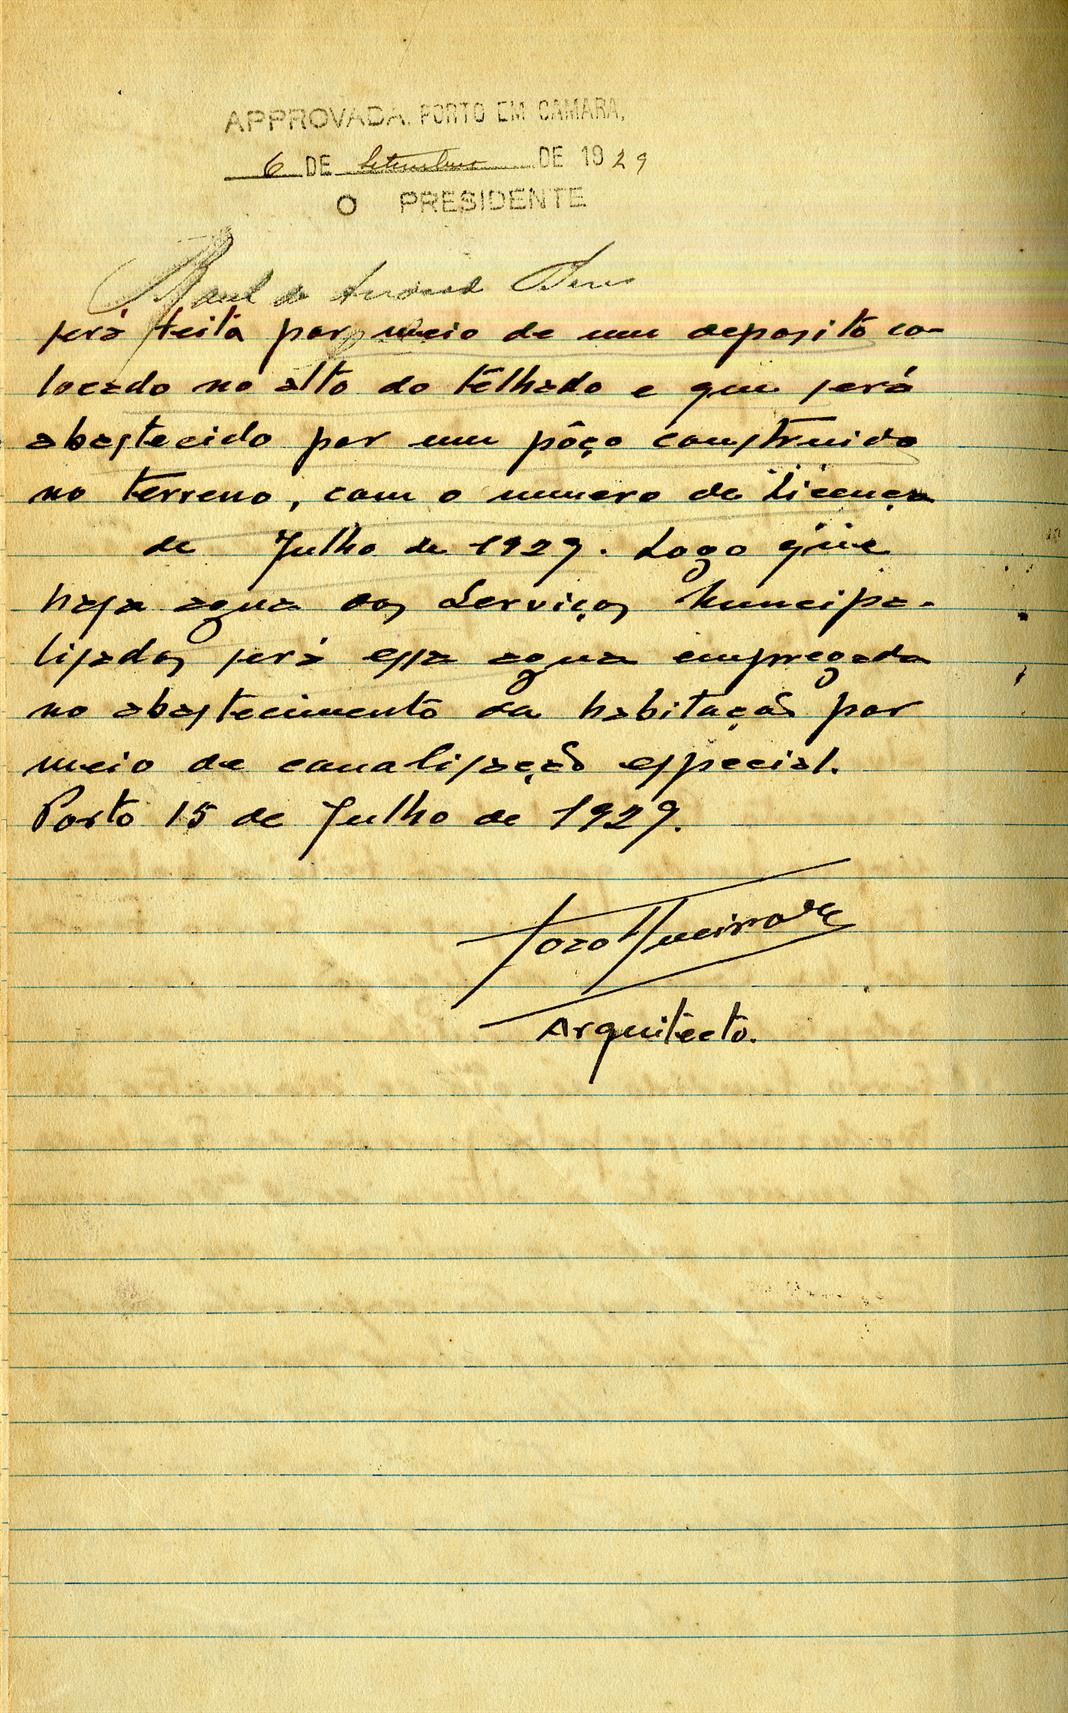 APPROVADA. PORTO EM CAMARA,
6 DE Setembro DE 1929
O PRESIDENTE
Raul de Andrade Peres
será feita por meio de um deposito co-
locado no alto do telhado e que será
abastecido por um pôço construido
no terreno, com o numero da licença
de Julho de 1929. Logo que
haja agua dos Serviços Municipa-
lisados será essa agua empregada
no abastecimento da habitação por
meio de canalisação especial.
Porto 15 de Julho de 1929.
João Queiroz
Arquitecto.